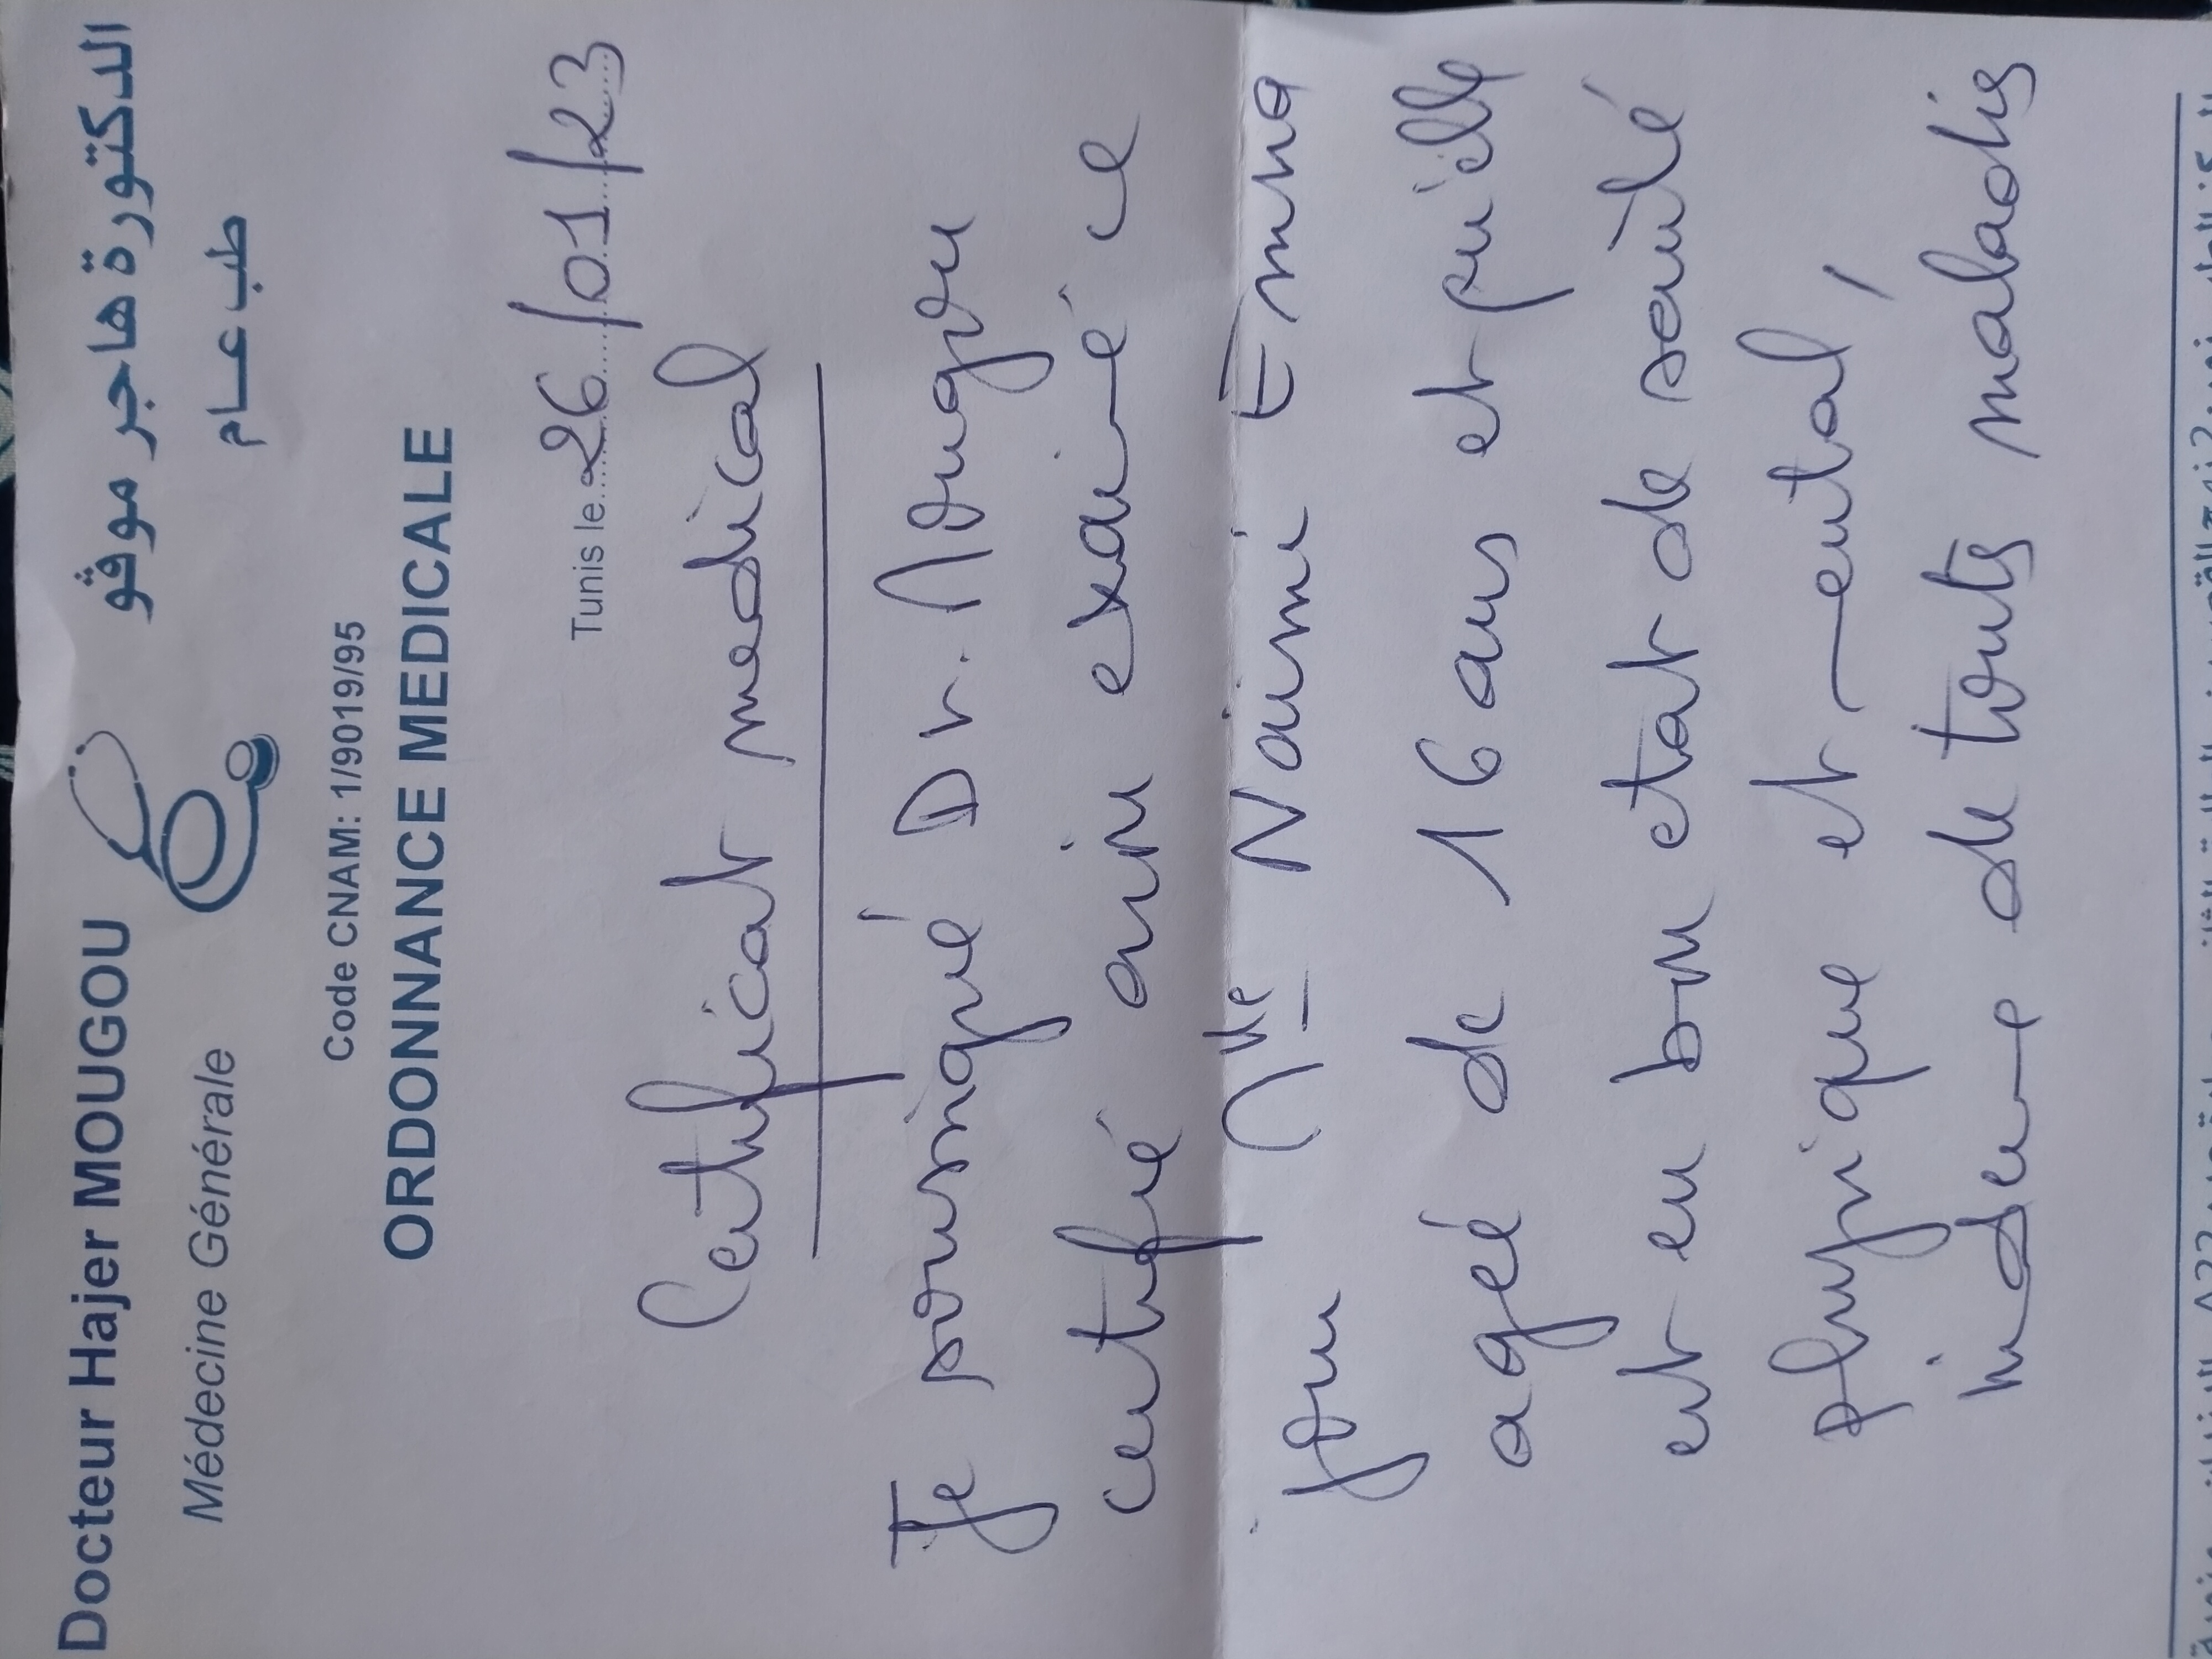 Docteur Hajer MOUGOU
الدكتورة هاجر موڤو
Médecine Générale
طب عام
Code CNAM: 1/9019/95
ORDONNANCE MEDICALE
Tunis le 26/01/23
Certificat medical
Je sousigné Dr. Mougou
certifié avoir examiné ce
jour Mlle Naimi Emna
agée de 16 ans et qu'elle
est en bon etat de santé
physique et mental,
indemne de touts maladis